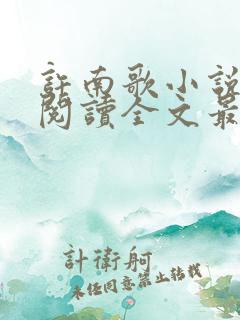 許南歌小說
閱讀全文最
計衛舸
未經同意禁止轉載